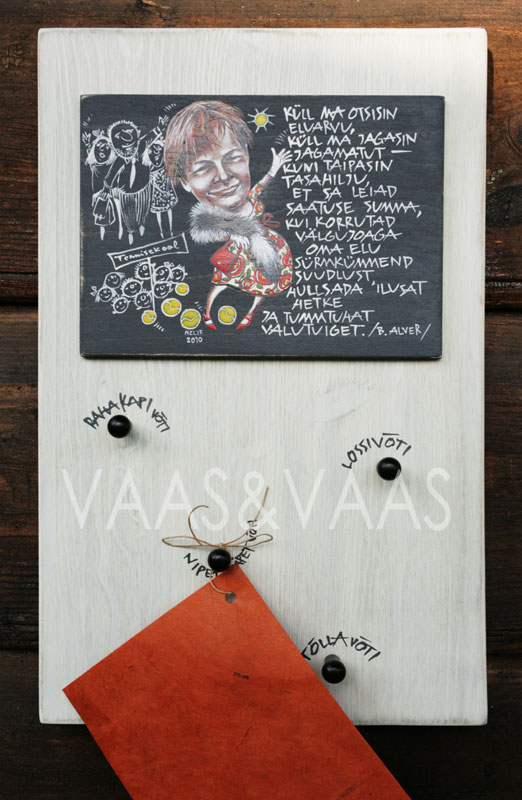 KÜLL MA OTSISIN
ELUARVU,
KÜLL MA JAGASIN
JAGAMATUT —
KUNI TAIPASIN
TASAHILJU,
ET SA LEIAD
SAATUSE SUMMA,
KUI KORRUTAD
VÄLGUJOAGA
OMA ELU
SÜRMKÜMMEND
SUUDLUST
HULLSADA ILUSAT
HETKE
JA TUMMTUHAT
VALUTUIGET. /B. ALVER/
Tennisekool
2010
RAHAKAPI VÕTI
LOSSIVÕTI
VAAS&VAAS
TÕLLAVÕTI